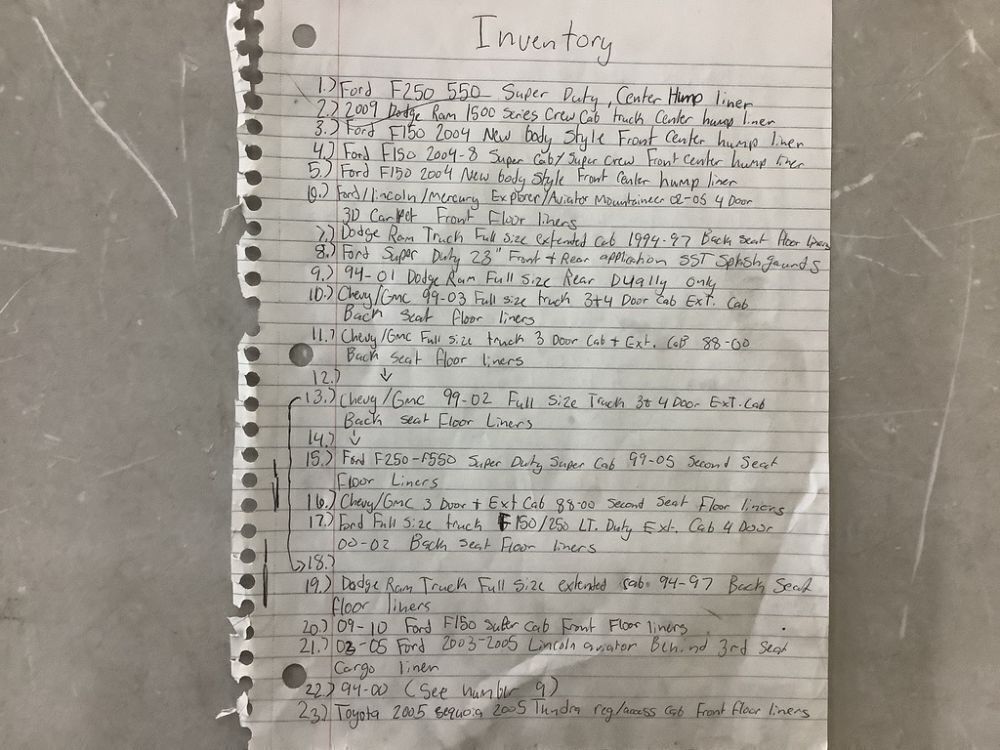 Inventory
1.) Ford F250 550 Super Duty, Center Hump liner
2.) 2009 Dodge Ram 1500 Series Crew Cab truck Center hump liner
3.) Ford F150 2004 New body Style Front Center hump liner
4.) Ford F150 2004-8 Super Cab/Super Crew Front Center hump liner
5.) Ford F150 2004 New body Style Front Center hump liner
6.) Ford/lincoln/Mercury Explorer/Aviator Mountaineer 02-05 4 Door
3D Carpet Front Floor liners
7.) Dodge Ram Truck Full Size extended cab 1994-97 Back seat floor liners
8.) Ford Super Duty 23" Front + Rear application SST Splash gaurds
9.) 94-01 Dodge Ram Full Size Rear Dually only
10.) Chevy/Gmc 99-03 Full size truck 3+4 Door cab Ext. Cab
Back seat floor liners
11.) Chevy/Gmc Full Size truck 3 Door Cab + Ext. CaB 88-00
Back seat floor liners
12.) ↓
13.) Chevy/Gmc 99-02 Full Size Truck 3&4 Door Ext.Cab
Back seat Floor Liners
14.) ↓
15.) Ford F250-F550 Super Duty Super Cab 99-05 Second Seat
Floor Liners
16.) Chevy/Gmc 3 Door + Ext Cab 88-00 Second Seat Floor liners
17.) Ford Full Size truck F150/250 LT. Duty Ext. Cab 4 Door
00-02 Back seat Floor liners
18.)
19.) Dodge Ram Truck Full Size extended cab 94-97 Back Seat
floor liners
20.) 09-10 Ford F150 Super cab Front Floor liners
21.) 03-05 Ford 2003-2005 Lincoln aviator Behind 3rd Seat
Cargo liner
22.) 94-00 (See number 9)
23.) Toyota 2005 sequoia 2005 Tundra reg/access cab Front Floor liners